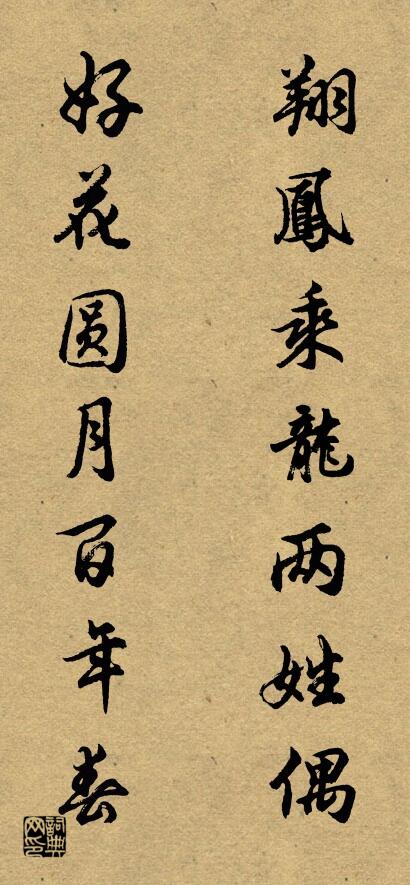 翔鳳乘龍两姓偶
好花圆月百年春
詞典网印